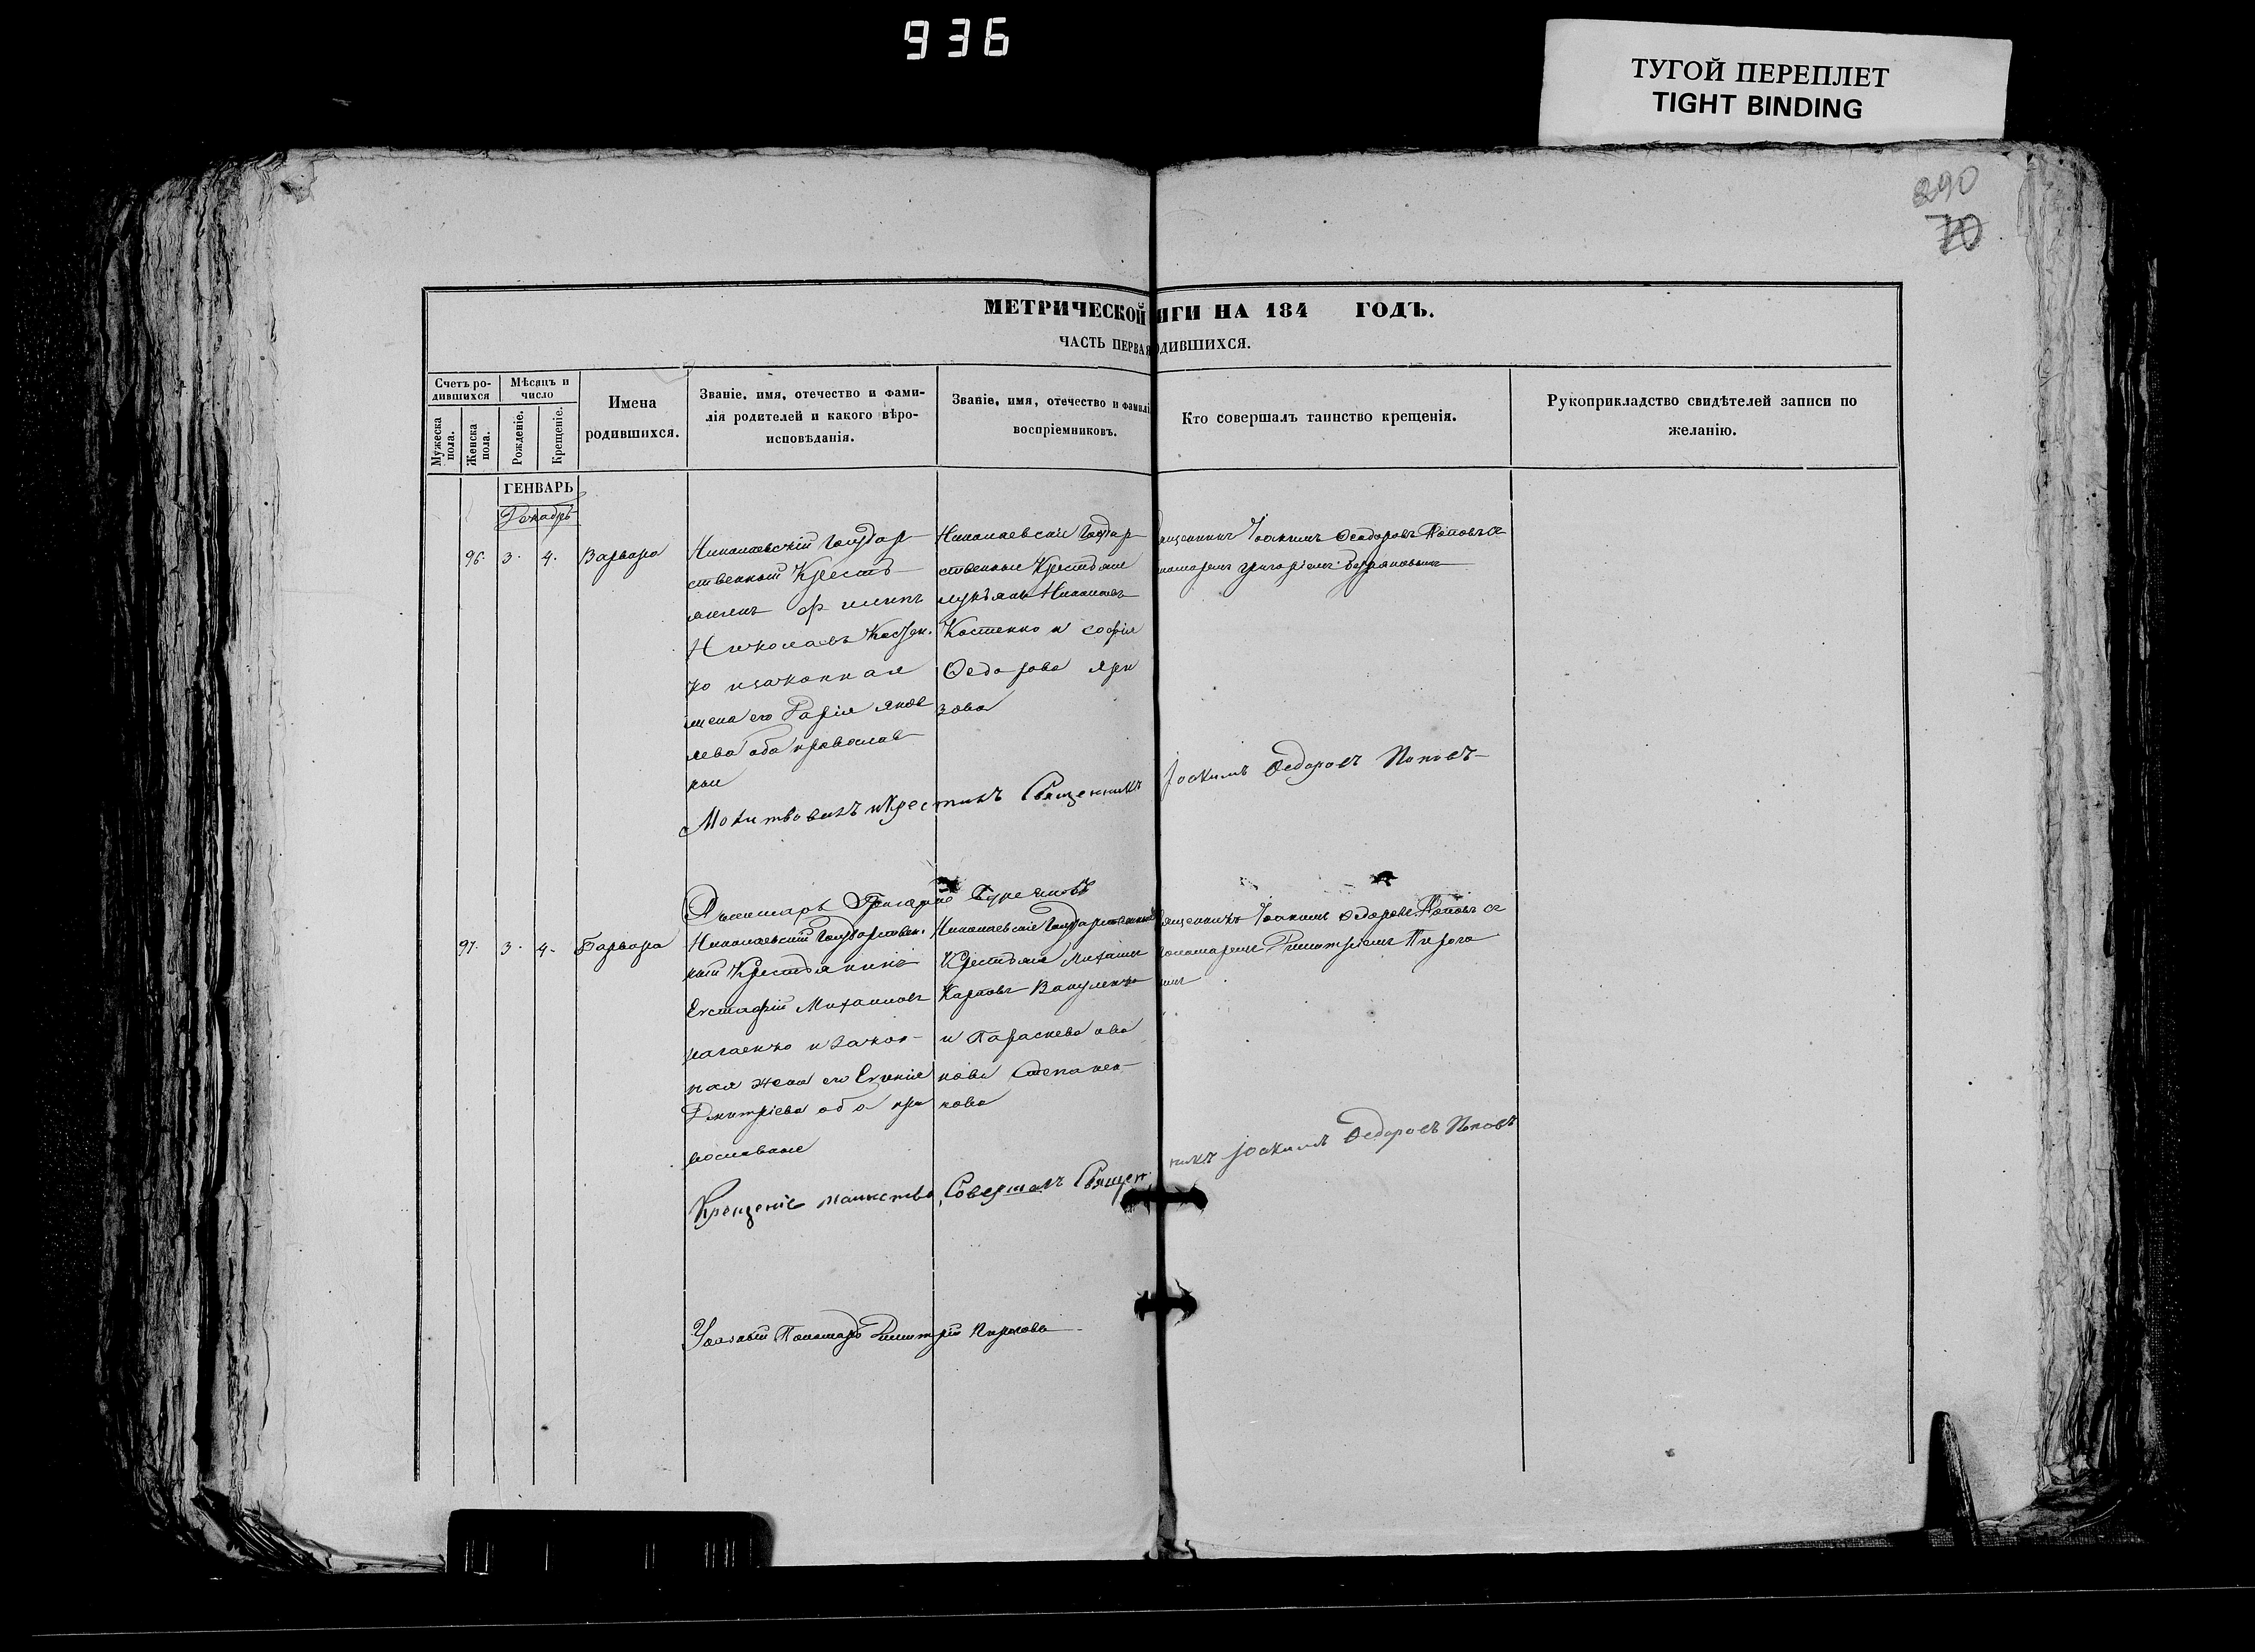 936
ТУГОЙ ПЕРЕПЛЕТ
TIGHT BINDING
290
70
МЕТРИЧЕСКОЙ ИГИ НА 184 ГОДЪ.
ЧАСТЬ ПЕРВАЯ ОДИВШИХСЯ.
Счетъ ро-
дившихся
Мужеска пола.
Женска пола.
Мѣсяцъ и
число
Рожденіе.
Крещеніе.
Имена
родившихся.
Званіе, имя, отечество и фами-
лія родителей и какого вѣро-
исповѣданія.
Званіе, имя, отечество и фамилі
воспріемниковъ.
Кто совершалъ таинство крещенія.
Рукоприкладство свидѣтелей записи по
желанію.
ГЕНВАРЬ
Декабрь
96. 3. 4. Варвара
Николаевскій Государ
ственный Кресть
янинъ Филипъ
Николаевъ Костен.
ко и законная
жена его Марія Яков
лева оба православ
ныи
Николаевскіе Государ
ственные Крестьяне
Лукьянъ Николаевъ
Костенко и Софія
Федорова
зова
ященникъ Іоакимъ Феодоровъ Поповъ съ
номаремъ Григоріемъ
Молитвовалъ и Крестилъ Священникъ Іоакимъ Федоровъ Поповъ
Пономарь Григорій
97. 3. 4. Варвара
Николаевскій Государствен.
ный Крестьянинъ
Евстафій Михаиловъ
и закон-
ная жена его Евгенія
Дмитріева оба пра
вославные
Николаевскіе Государственные
Крестьяне Михаилъ
Карповъ Вакуленко
и Параскева ива
нова Степанен-
кова
ященникъ Іоакимъ Федоровъ Поповъ съ
ономаремъ Димитріемъ Пирого
вымъ
Крещеніе таинство Совершалъ Священ никъ Іоакимъ Федоровъ Поповъ
Указный Пономарь Димитрій Пироговъ